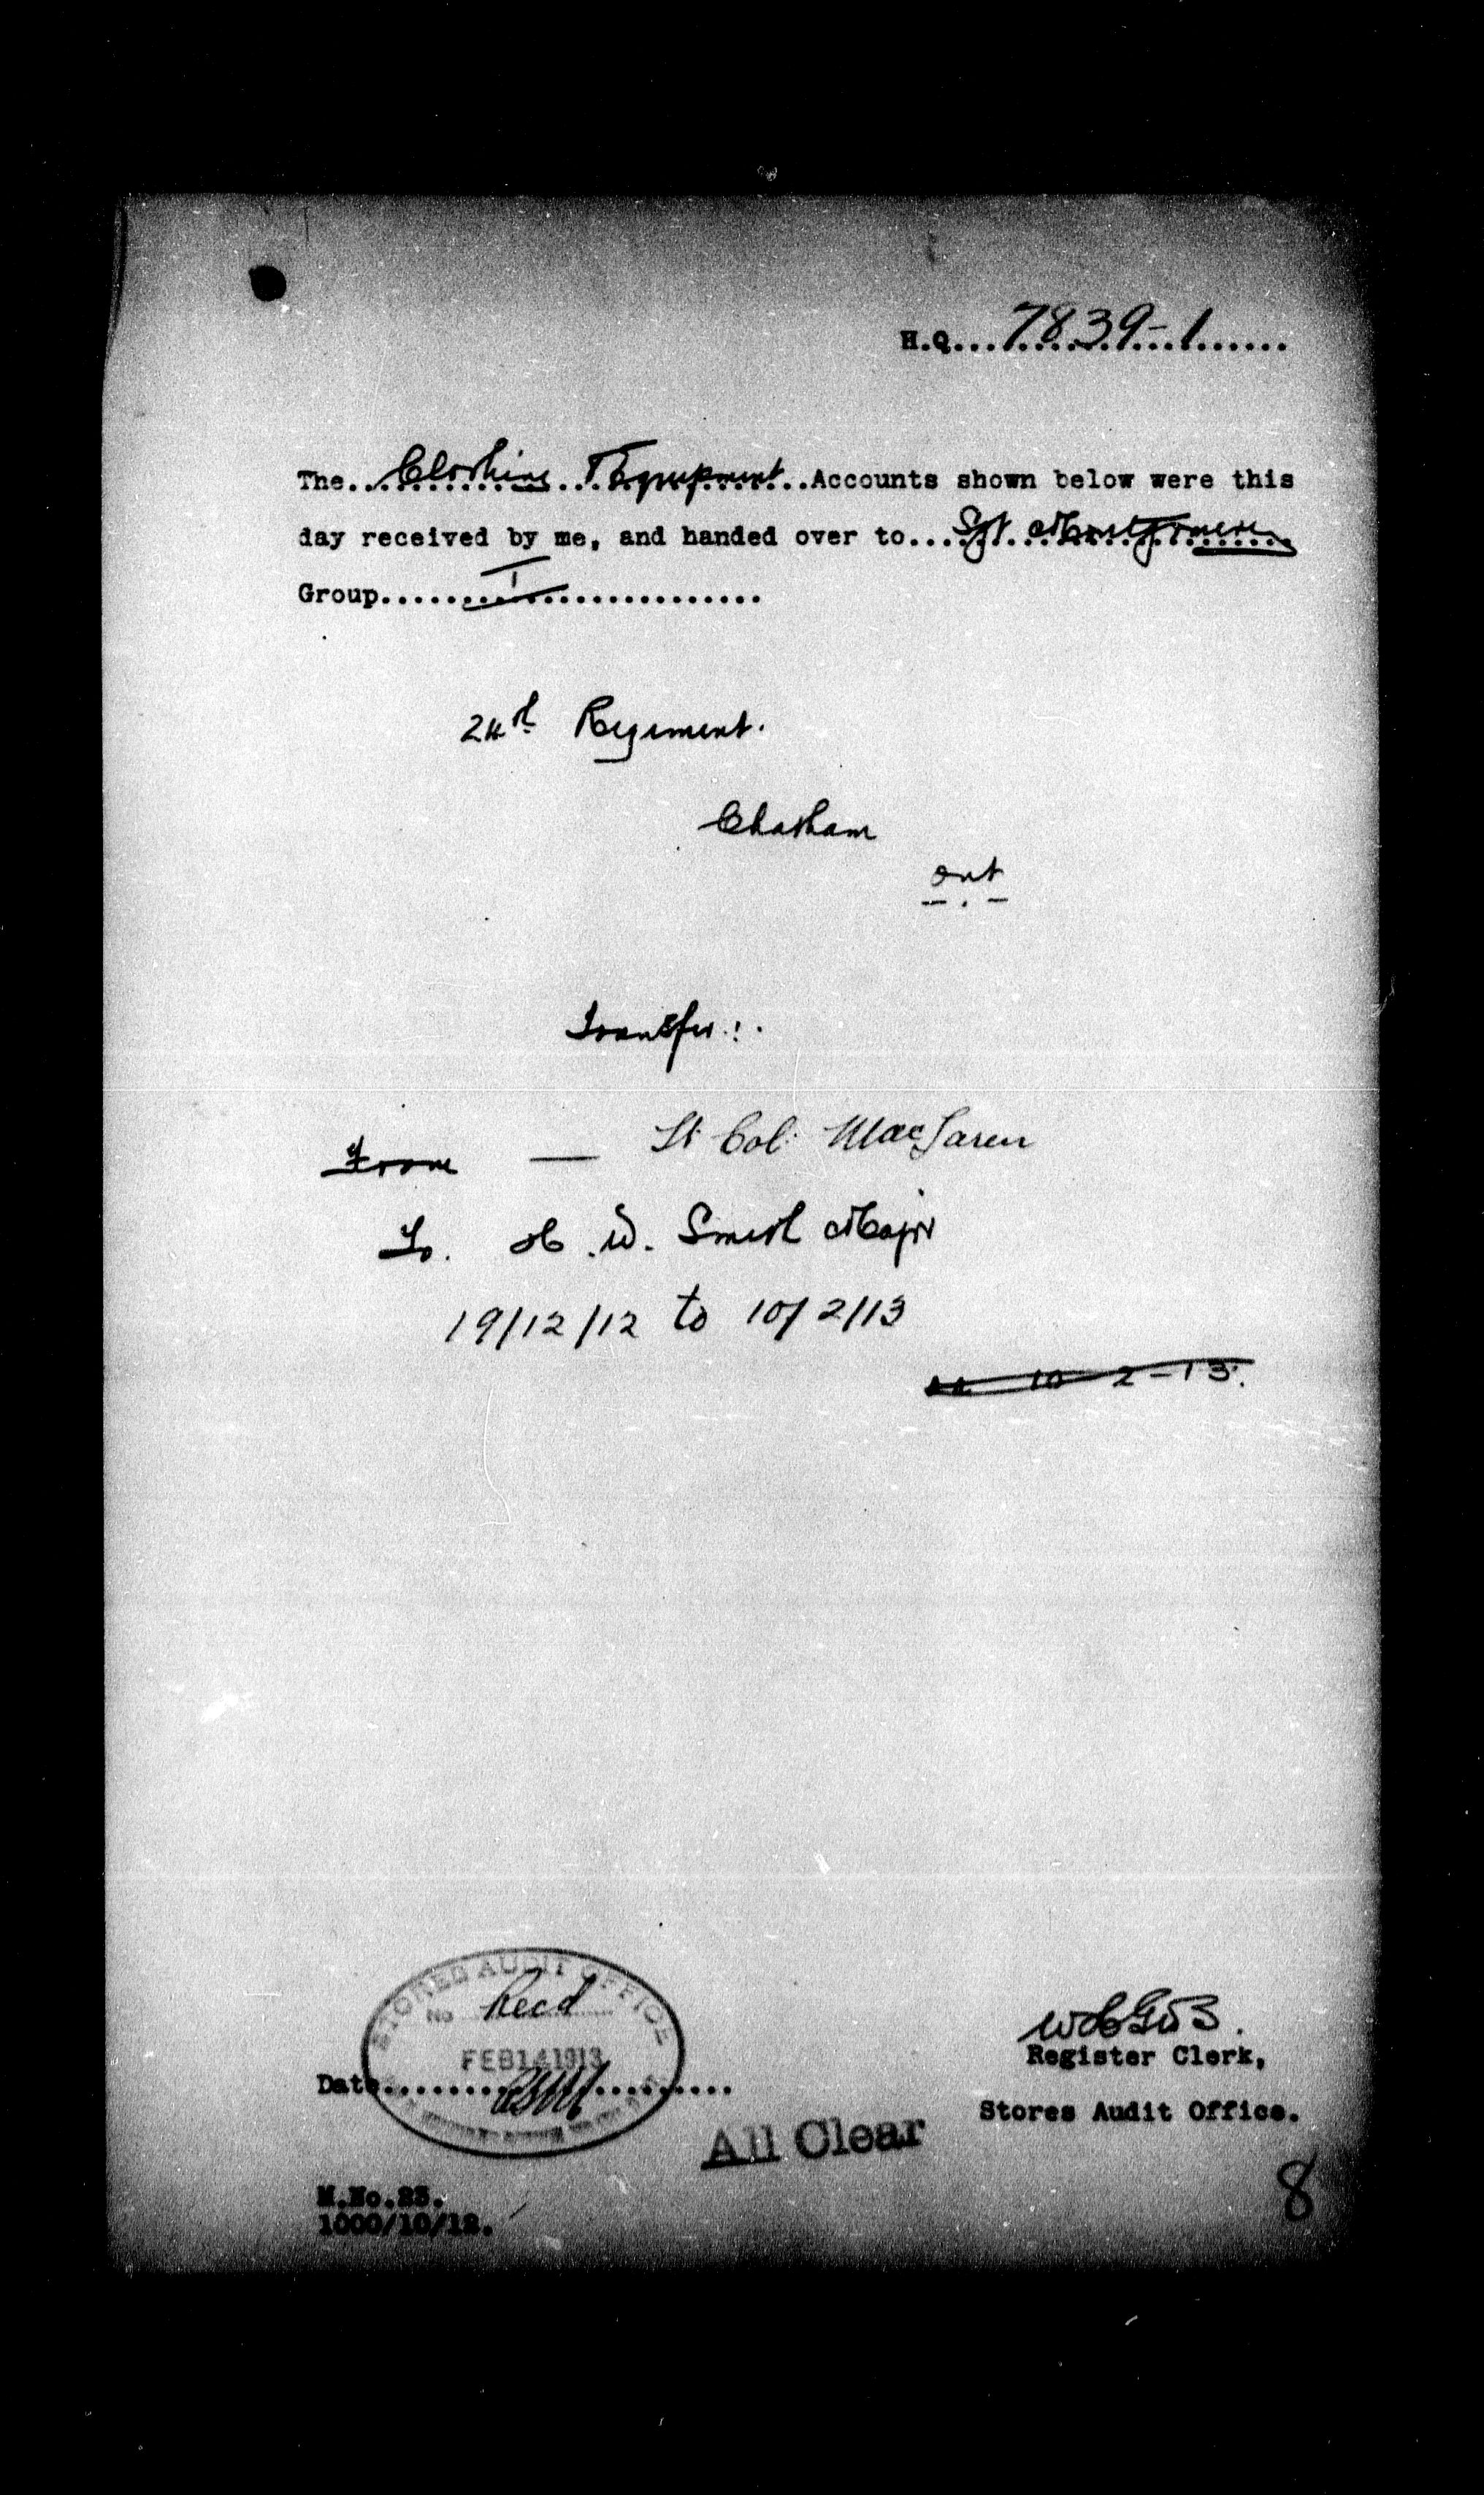 H.Q...7839-1......
The...Clothing & Equipment...Accounts shown below were this
day received by me, and handed over to....Sgt. Montgomery
Group......I..................
24th Regiment.
Chatham
Ont
Transfer:
From — Lt. Col. MacLaren
To. H. W. Smith Major
19/12/12 to 10/2/13
10-2-13.
STORES AUDIT OFFICE
No Recd
FEB 14 1913
Date..............................
Register Clerk,
Stores Audit Office.
All Clear
M.No.25.
1000/10/12.
8